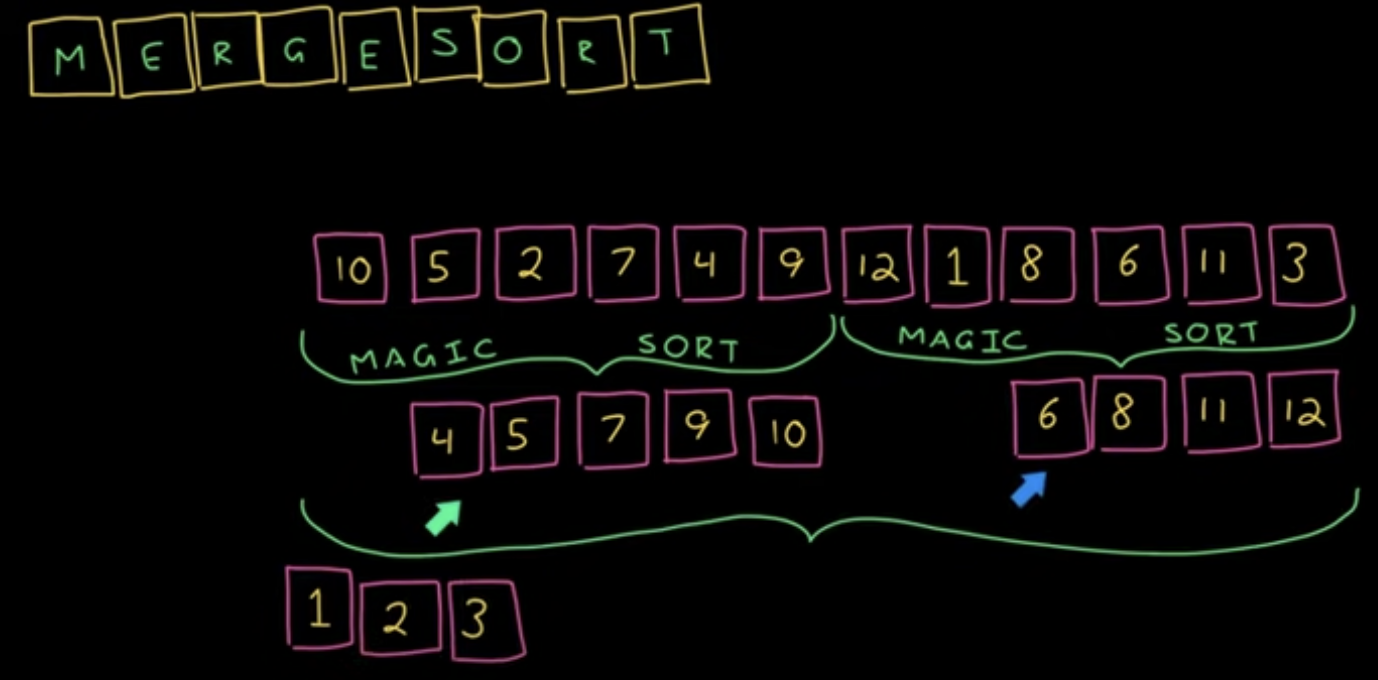 MERGESORT
10 5 2 7 4 9 12 1 8 6 11 3
MAGIC SORT MAGIC SORT
4 5 7 9 10 6 8 11 12
1 2 3